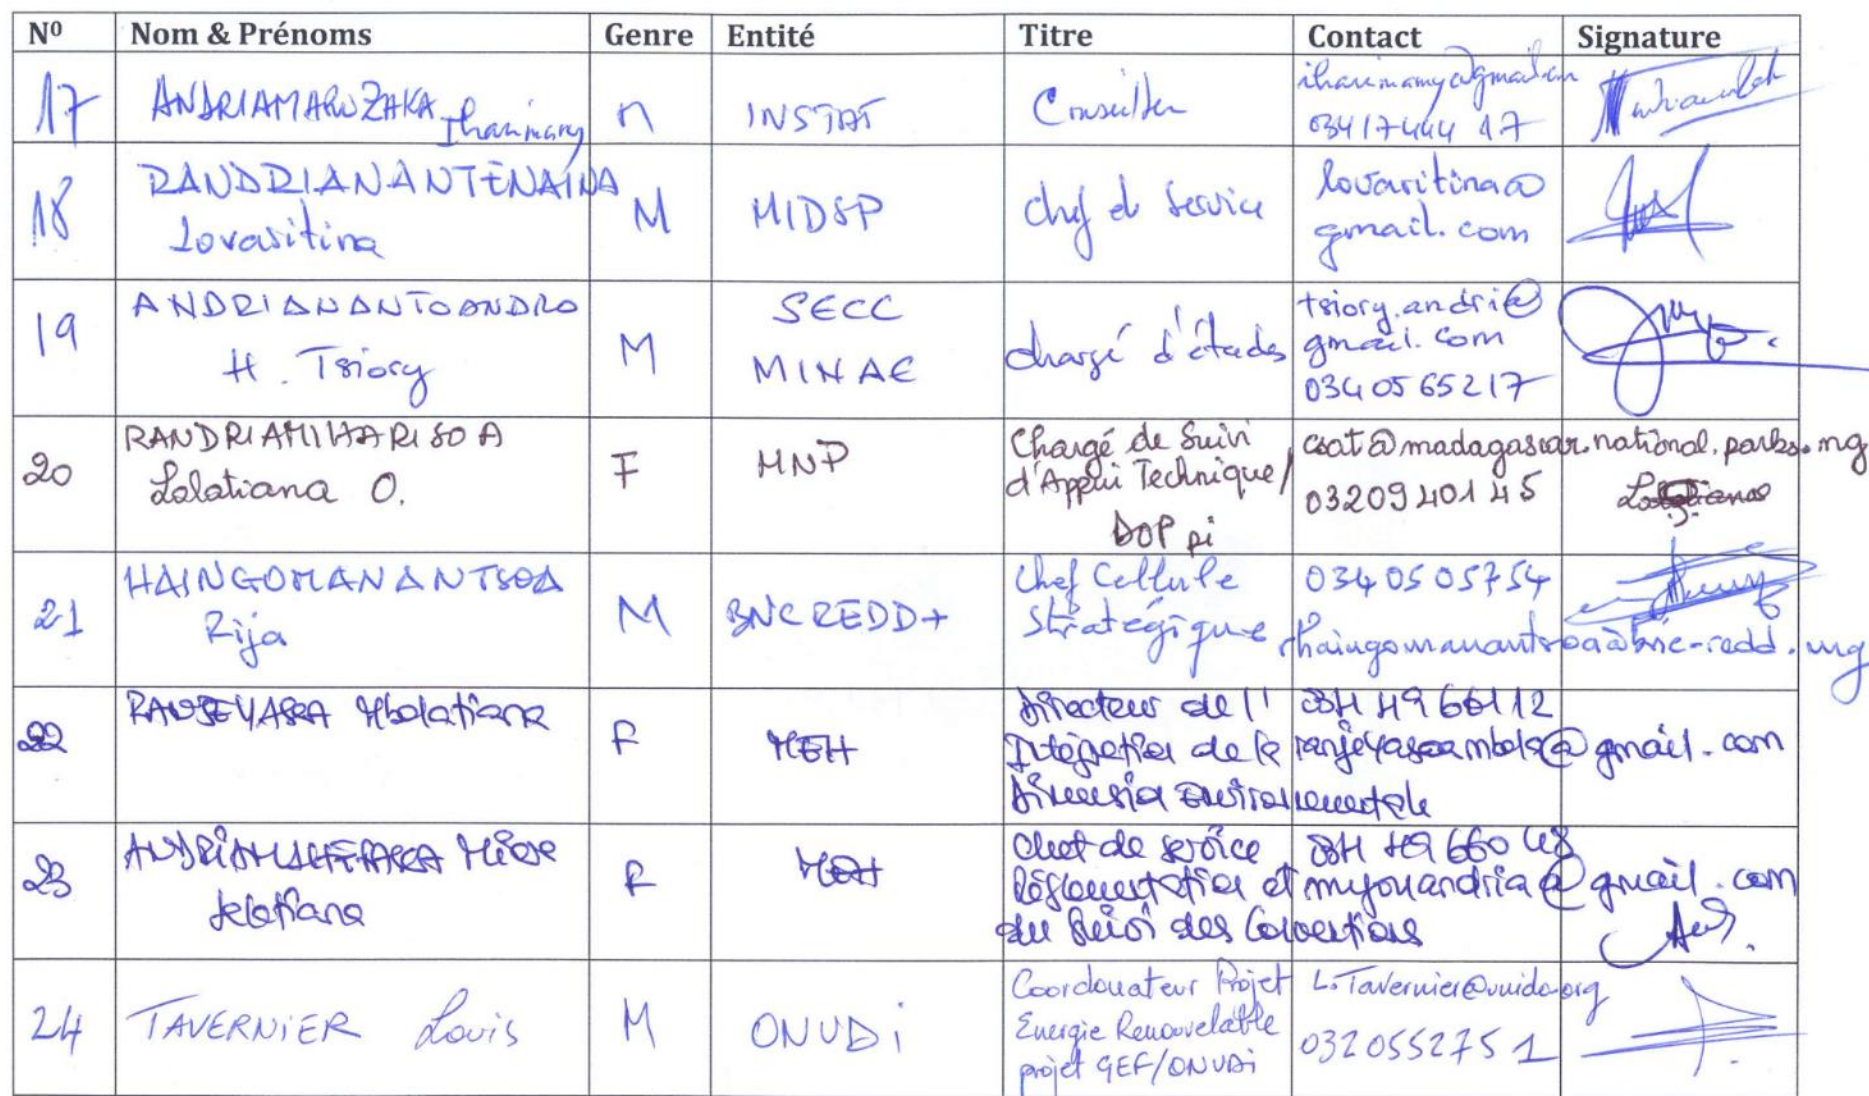 Nº Nom & Prénoms Genre Entité Titre Contact Signature
17 ANDRIAMAROZAKA Iharimamy M INSTAT Conseiller iharimamy@gmail.com
034 17 444 17
18 RANDRIANANTENAINA Lovasitina M MIDSP chef de service lovasitina@
gmail.com
19 ANDRIANANTOANDRO
H. Tsiory M SECC
MINAE chargé d'études tsiory.andri@
gmail.com
034 05 65217
20 RANDRIAMIHARISOA
Lalatiana O. F MNP Chargé de Suivi
d'Appui Technique/
DOP pi csat@madagascar.national.parks.mg
03209 401 45
21 HAINGOMANANTSOA
Rija M BNCREDD+ Chef Cellule
Stratégique 034 05 057 54
rhaingomanantsoa@bnc-redd.mg
22 Mbolatiana F MEH Directeur de l'
Intégration de la
Dimension Environnementale 034 49 661 12
@gmail.com
23 F MEH Chef de service
Réglementation et
du Suivi des Conventions 034 49 660 48
@gmail.com
24 TAVERNiER Louis M ONUDi Coordonateur Projet
Energie Renouvelable
projet GEF/ONUDi L.Tavernier@unido.org
032 05 527 51